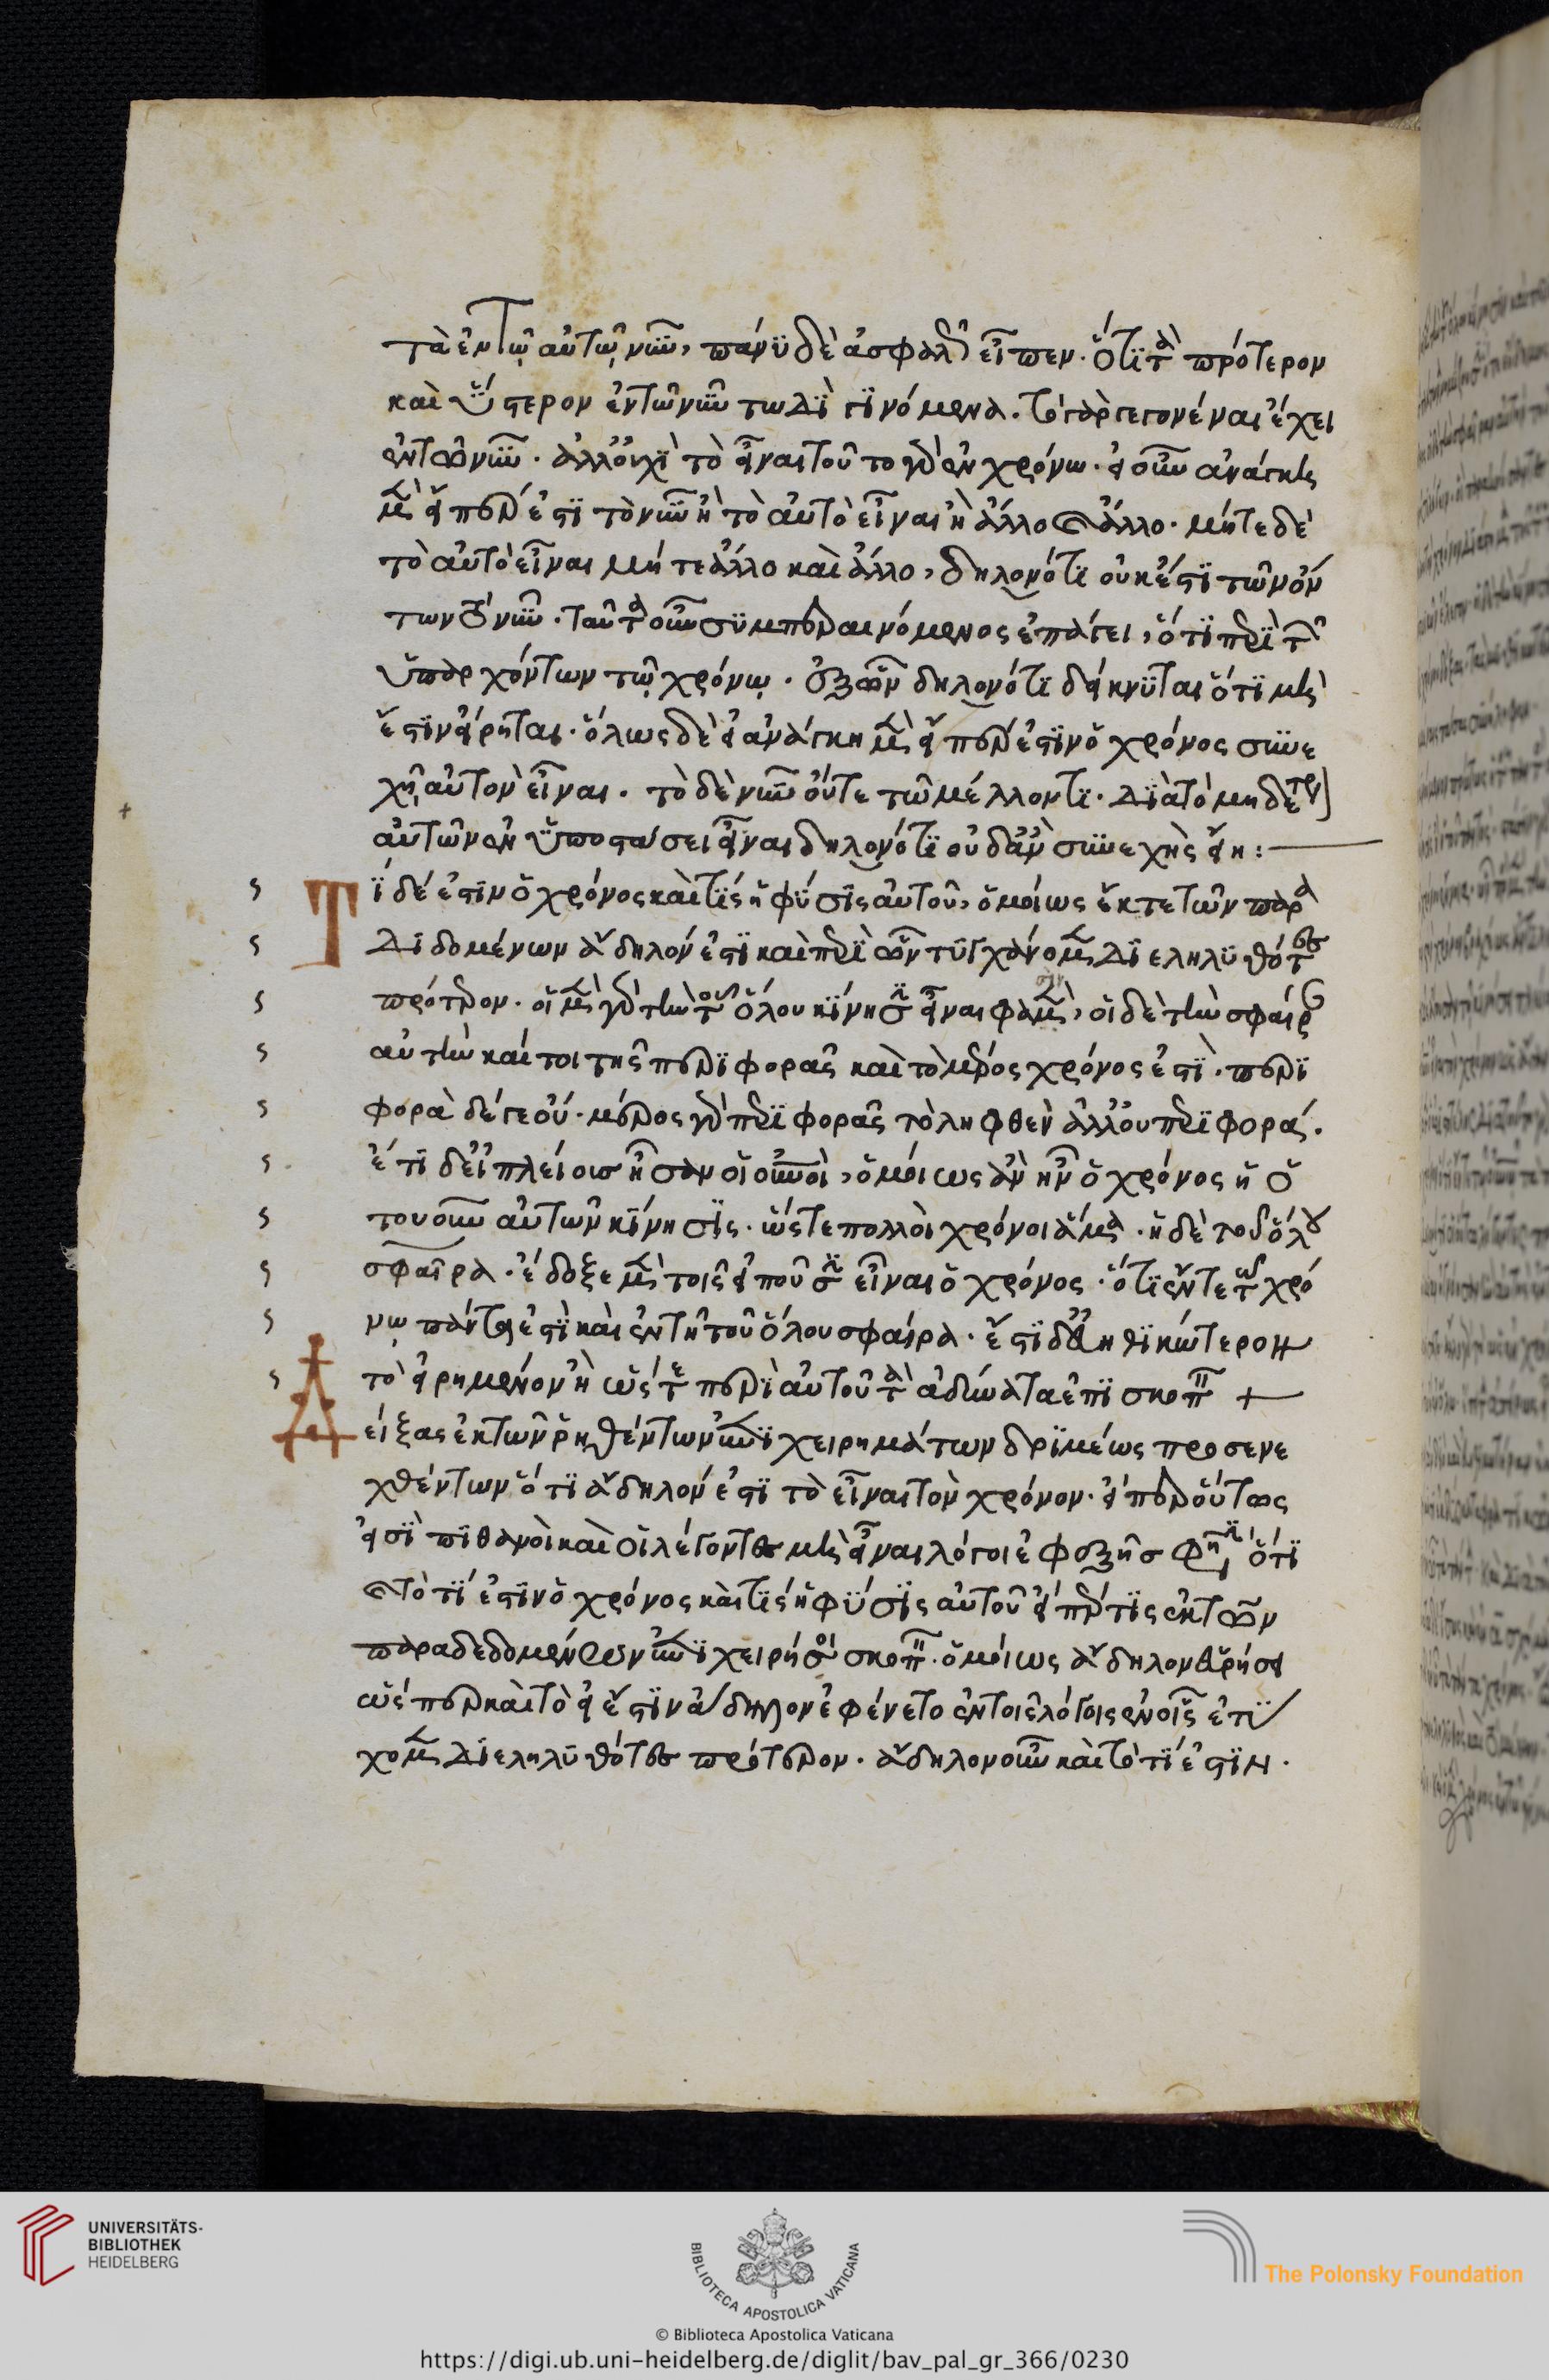 τὰ ἐν τῷ αὐτῷ νῦν, πάνυ δὲ ἀσφαλῶς εἶπεν. ὅτι τὰ πρότερον
καὶ ὕστερον ἐν τῶ νῦν τωδὶ γινόμενα. τὸ γὰρ γεγονέναι ἔχει
ἐν τῶ νῦν. ἀλλ' οὐχὶ τὸ εἶναι τοῦτο γὰρ ἐν χρόνω. εἰ οὖν ἀνάγκη
μὲν εἴπερ ἔστι τὸ νῦν ἢ τὸ αὐτὸ εἶναι ἢ ἄλλο καὶ ἄλλο. μήτε δὲ
τὸ αὐτὸ εἶναι μήτε ἄλλο καὶ ἄλλο, δηλονότι οὐκ ἔστι τῶν ὄν
των τὸ νῦν. ταῦτα οὖν συμπεραινόμενος ἐπάγει, ὅτι περὶ τῶν
ὑπαρχόντων τῷ χρόνῳ. ἐξ ὧν δηλονότι δείκνυται ὅτι μὴ
ἔστιν εἴρηται. ὅλως δὲ εἰ ἀνάγκη μὲν εἴπερ ἔστιν ὁ χρόνος συνε
χῆ αὐτὸν εἶναι. τὸ δὲ νῦν οὔτε τῶ μέλλοντι. διὰ τὸ μηδέτερον
αὐτῶν ἐν ὑποστάσει εἶναι δηλονότι οὐδ' ἂν συνεχὴς εἴη:
Τί δέ ἐστιν ὁ χρόνος καὶ τίς ἡ φύσις αὐτοῦ, ὁμοίως ἔκ τε τῶν παρα
διδομένων ἄδηλόν ἐστι καὶ περὶ ὧν τυγχάνομεν διεληλυθότες
πρότερον. οἱ μὲν γὰρ τὴν τοῦ ὅλου κίνησιν εἶναι φαμὲν, οἱ δὲ τὴν σφαῖραν
αὐτὴν καίτοι τῆς περιφορᾶς καὶ τὸ μέρος χρόνος ἐστὶ. περι
φορὰ δέ γε οὔ. μέρος γὰρ περιφορᾶς τὸ ληφθὲν ἀλλ' οὐ περιφορά.
ἔτι δ' εἰ πλείους ἦσαν οἱ οὐρανοὶ, ὁμοίως ἂν ἦν ὁ χρόνος ἡ ὁ
τουοῦν αὐτῶν κίνησις. ὥστε πολλοὶ χρόνοι ἅμα. ἡ δὲ τοῦ ὅλου
σφαῖρα. ἔδοξε μὲν τοῖς εἰποῦσιν εἶναι ὁ χρόνος. ὅτι ἔν τε τῶ χρό
νῳ πάντα ἐστὶ καὶ ἐν τῆ τοῦ ὅλου σφαίρα. ἔστι δ' εὐηθικώτερον
τὸ εἰρημένον ἢ ὥστε περὶ αὐτοῦ τὰ ἀδύνατα ἐπισκοπεῖν +
Δείξας ἐκ τῶν ῥηθέντων ἐπιχειρημάτων δριμέως προσενε
χθέντων ὅτι ἄδηλόν ἐστι τὸ εἶναι τὸν χρόνον. εἴπερ οὕτως
εἰσὶ πιθανοὶ καὶ οἱ λέγοντες μὴ εἶναι λόγοι ἐφεξῆς φησὶν ὅτι
καὶ τὸ τί ἐστιν ὁ χρόνος καὶ τίς ἡ φύσις αὐτοῦ εἴπερ τις ἐκ τῶν
παραδεδομένων ἐπιχειρήσοι σκοπεῖν. ὁμοίως ἄδηλον εὑρήσει
ὥσπερ καὶ τὸ εἰ ἔστιν ἄδηλον ἐφένετο ἐν τοῖς λόγοις ἐν οἷς ἐτύ
χομεν διεληλυθότες πρότερον. ἄδηλον οὖν καὶ τὸ τί ἐστιν.
UNIVERSITÄTS-
BIBLIOTHEK
HEIDELBERG
BIBLIOTECA APOSTOLICA VATICANA
The Polonsky Foundation
© Biblioteca Apostolica Vaticana
https://digi.ub.uni-heidelberg.de/diglit/bav_pal_gr_366/0230